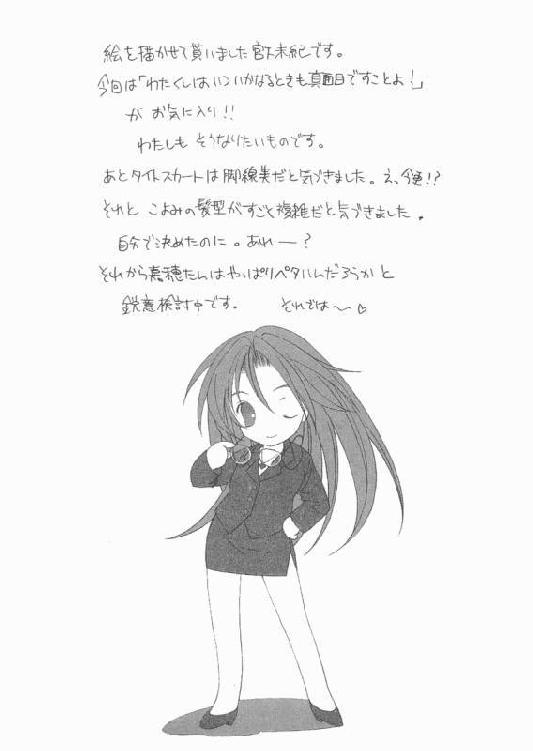 絵を描かせて貰いました宮下未紀です。
今回は「わたくしはいついかなるときも真面目ですことよ!」
が お気に入り!!
わたしも そうなりたいものです。
あとタイトスカートは脚線美だと気づきました。え、今更!?
それと こよみの髪型がすごく複雑だと気づきました。
自分で決めたのに。あれー?
それから嘉穂たんはやっぱりペタハんだろうかと
鋭意検討中です。 それでは〜♡